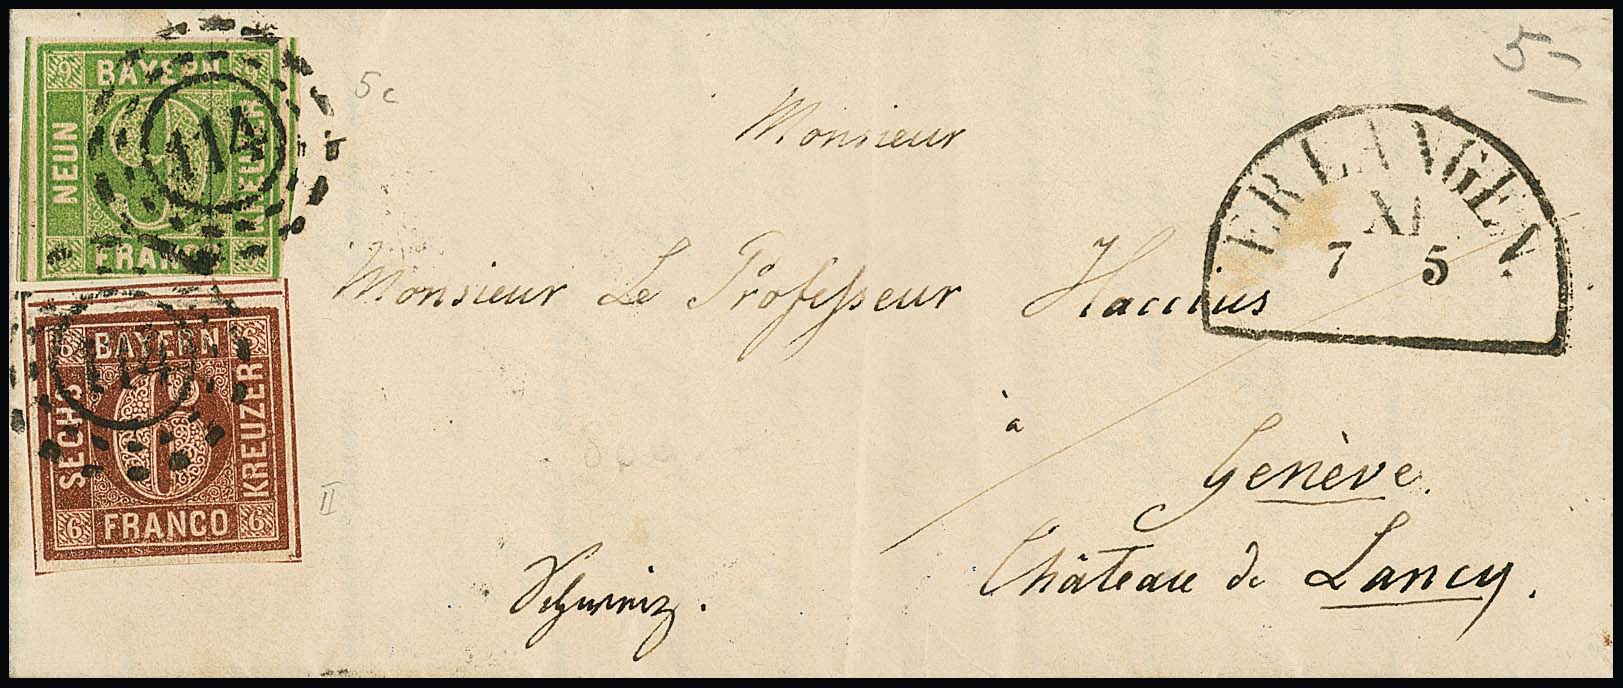 9 BAYERN 9
NEUN
KREUZER
FRANCO
114
6 BAYERN 6
SECHS
6
KREUZER
6 FRANCO 6
114
5c
II
5
ERLANGEN
XI
7 5
Monsieur
Monsieur Le Professeur Haccius
à
Genève.
Château de Lancy.
Schweiz.